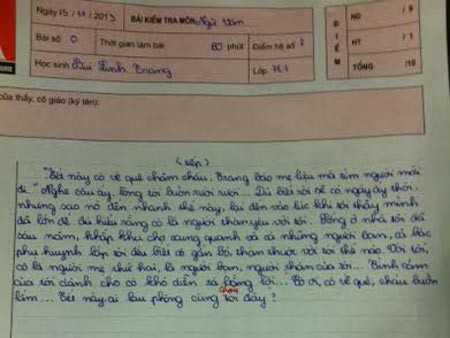 Ngày 15 / 11 / 2013 BÀI KIỂM TRA MÔN: Ngữ Văn
Bài số 0 Thời gian làm bài 80 phút Điểm hệ số 2
Học sinh Bùi Linh Trang Lớp
ĐIỂM
ND / 9
HT / 1
TỔNG /10
của thầy, cô giáo (ký tên):
(tiếp)
"Tết này cô về quê chăm cháu, Trang bảo mẹ liệu mà tìm người mới
đi." Nghe câu ấy, lòng tôi buồn rười rượi... Dù biết rồi sẽ có ngày ấy thôi,
nhưng sao nó đến nhanh thế này, lại đến vào lúc khi tôi thấy mình
đã lớn để đủ hiểu rằng cô là người thân yêu với tôi. Sống ở nhà tôi đã
sáu năm, khắp khu chợ xung quanh và cả những người bạn, cả bác
phụ huynh lớp tôi đều biết cô gắn bó thân thuộc với tôi thế nào. Với tôi,
cô là người mẹ thứ hai, là người bạn, người thân của tôi... Tình cảm
của tôi dành cho cô khó diễn tả bằng lời... Cô ơi, cô về quê, cháu buồn
lắm.... Tết này ai lau phòng cùng tôi đây?